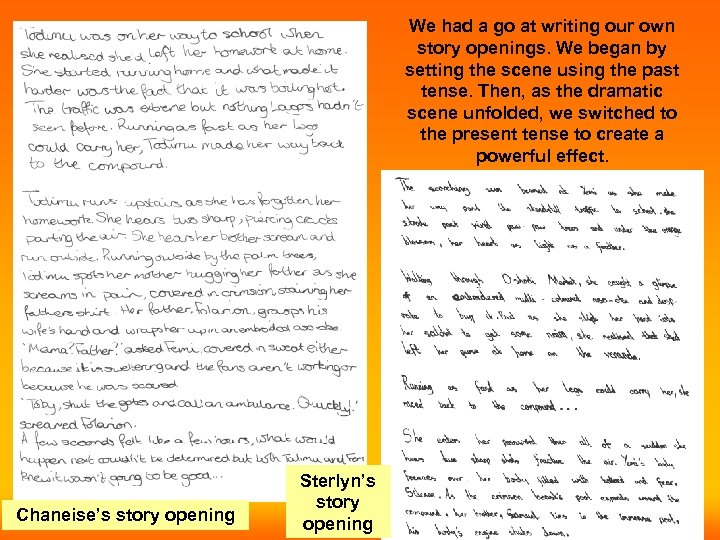 We had a go at writing our own
story openings. We began by
setting the scene using the past
tense. Then, as the dramatic
scene unfolded, we switched to
the present tense to create a
powerful effect.
Todimu was on her way to school when
she realised she'd left her homework at home.
She started running home and what made it
harder was the fact that it was boiling hot.
The traffic was extreme but nothing Lagos hadn't
seen before. Running as fast as her legs
could carry her, Todimu made her way back
to the compound.
Todimu runs upstairs as she has forgotten her
homework. She hears two sharp, piercing cracks
parting the air. She hears her brother scream and
run outside. Running outside by the palm trees,
Todimu spots her mother hugging her father as she
screams in pain, covered in crimsion, staining her
fathers shirt. Her father, Folarion, grasps his
wife's hand and wraps her up in an
"Mama? Father?" asked Femi, covered in sweat either
because it is sweltering and the fans aren't working or
because he was scared.
"Toby, shut the gates and call an ambulance. Quickly!"
screamed Folarion.
A few seconds felt like a few hours, what would
happen next couldn't be determined but with Todimu and Femi
knew it wasn't going to be good...
Chaneise's story opening
Sterlyn's
story
opening
The scorching sun beamed at Yemi as she make
her way past the standstill traffic to school. She
strode past vivid paw paw trees and under the orange
blossom, her heart as light as a feather.
Walking through Oshodi Market, she caught a glimpse
of an embroidered multi-coloured and
to buy it. But as she her hand into
her satchel to get some naira, she realised that she'd
left her purse at home on the veranda.
Running as fast as her legs could carry her, she
raced back to the compound...
She enters her when all of a sudden she
hears two sharp shots fracture the air. Yemi's body
freezes over her body filled with and fear.
Silence. As the crimson the
compound, her brother, lies in the immense pool,
his body's engine shuts down.